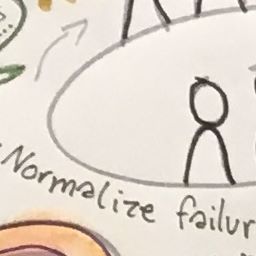 Normalize failur